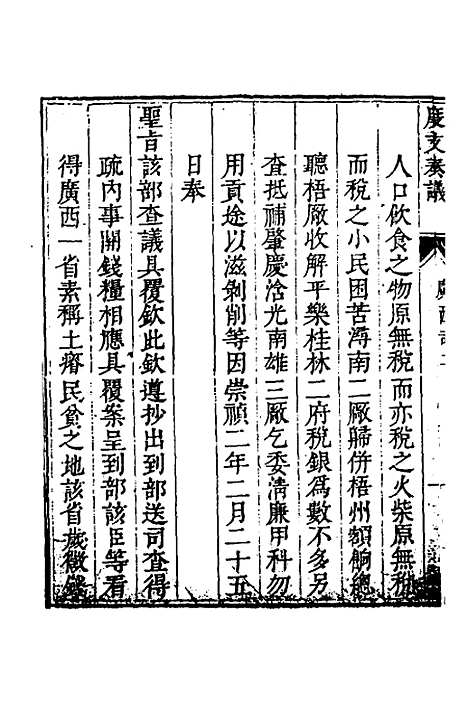 度支奏議
人口飲食之物原無稅而亦稅之火柴原無稅
而稅之小民困苦潯南二厰歸併梧州額餉總
聽梧厰收解平樂桂林二府稅銀爲數不多另
查抵補肇慶浛光南雄三厰乞委清廉甲科勿
用貢途以滋剝削等因崇禎二年二月二十五
日奉
聖旨該部查議具覆欽此欽遵抄出到部送司查得
疏內事關錢糧相應具覆案呈到部該臣等看
得廣西一省素稱土瘠民貧之地該省族徵